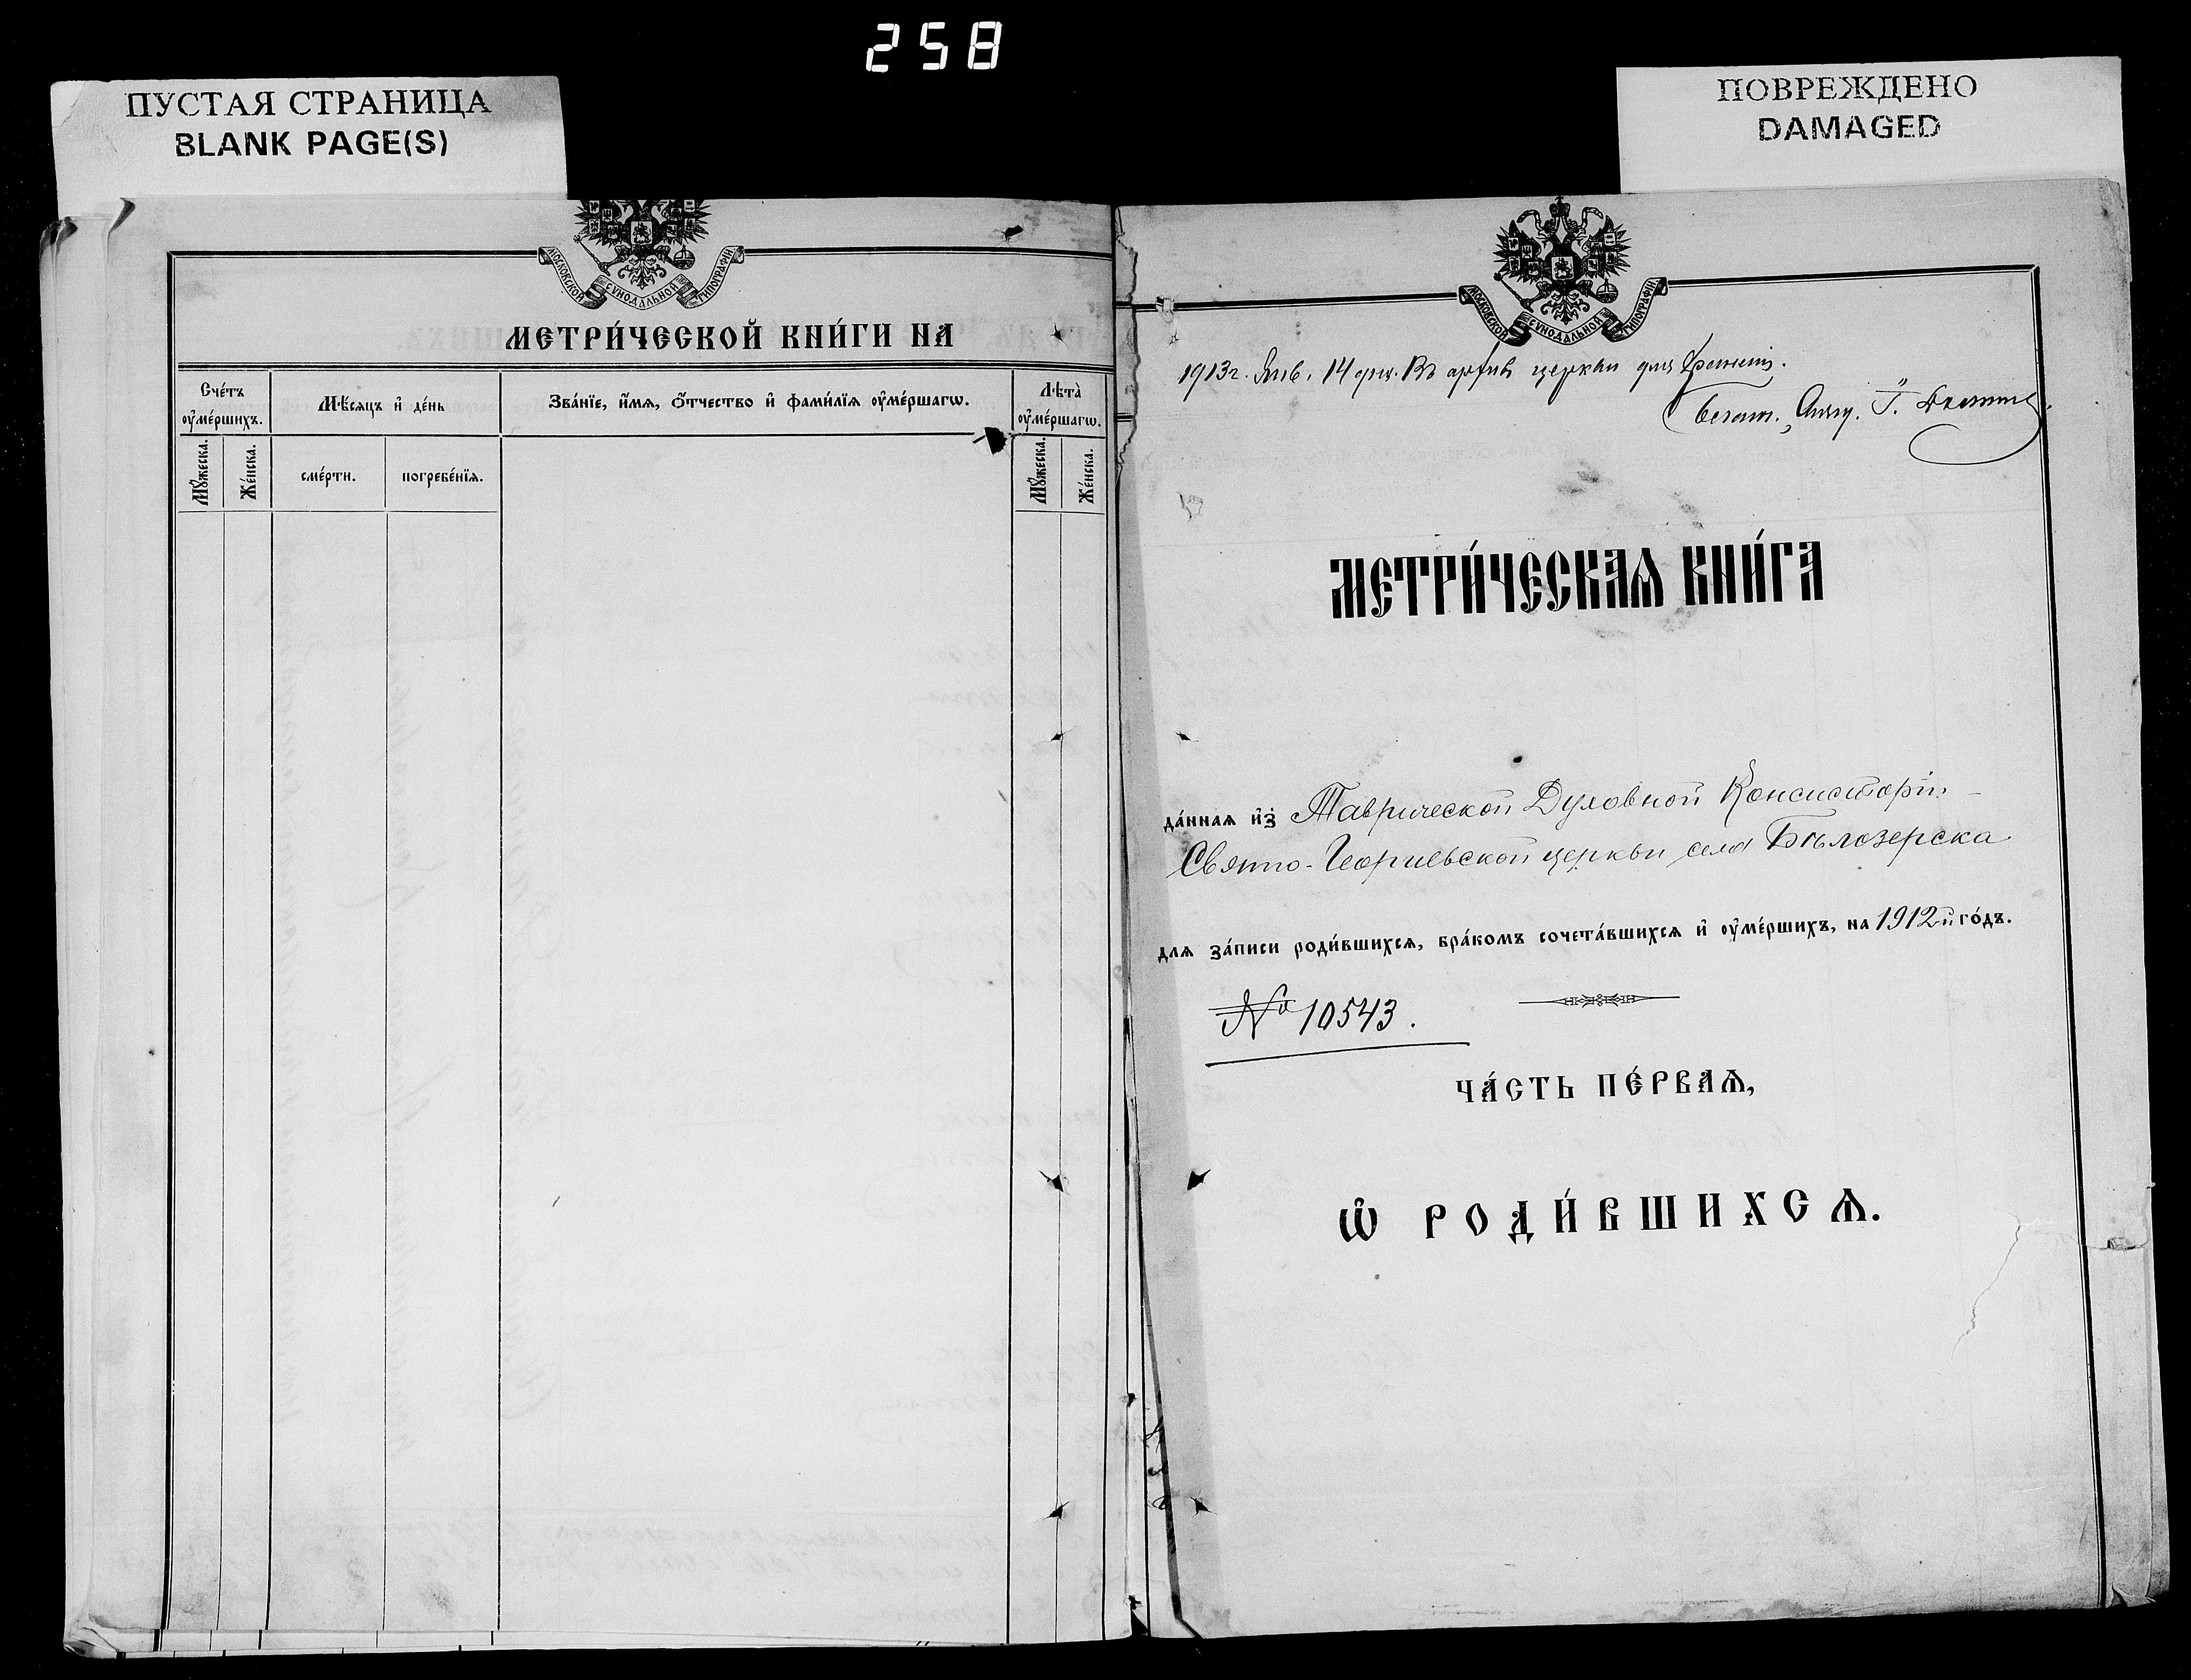 258
ПУСТАЯ СТРАНИЦА
BLANK PAGE(S)
ПОВРЕЖДЕНО
DAMAGED
МОСКОВСКОЙ СѴНОДАЛЬНОЙ ТИПОГРАФІИ
МЕТРИ́ЧЕСКОЙ КНИ́ГИ НА
Сче́тъ ᲂу҆ме́ршихъ.
Мѣ́сяцъ и҆ де́нь
Зва́нїе, и҆́мя, ѻ҆́тчество и҆ фами́лїя ᲂу҆ме́ршагѡ.
Лѣта̀ ᲂу҆ме́ршагѡ.
Мꙋ́жеска.
Же́нска.
сме́рти.
погребе́нїя.
Мꙋ́жеска.
Же́нска.
МОСКОВСКОЙ СѴНОДАЛЬНОЙ ТИПОГРАФІИ
1913 г. Янв. 14 дня. Въ архив церкви для
МЕТРИ́ЧЕСКАѦ КНИ́ГА
да́ннаѧ и҆з̾ Таврической Духовной Консисторіи
Свято-Георгиевской церкви села Бѣлозерска
длѧ за́писи роди́вшихсѧ, бра́комъ сочета́вшихсѧ и҆ ᲂу҆ме́ршихъ, на 1912й го́дъ.
№ 10543.
ЧА́СТЬ ПЕ́РВАѦ,
Ѡ҆ РОДИ́ВШИХСѦ.